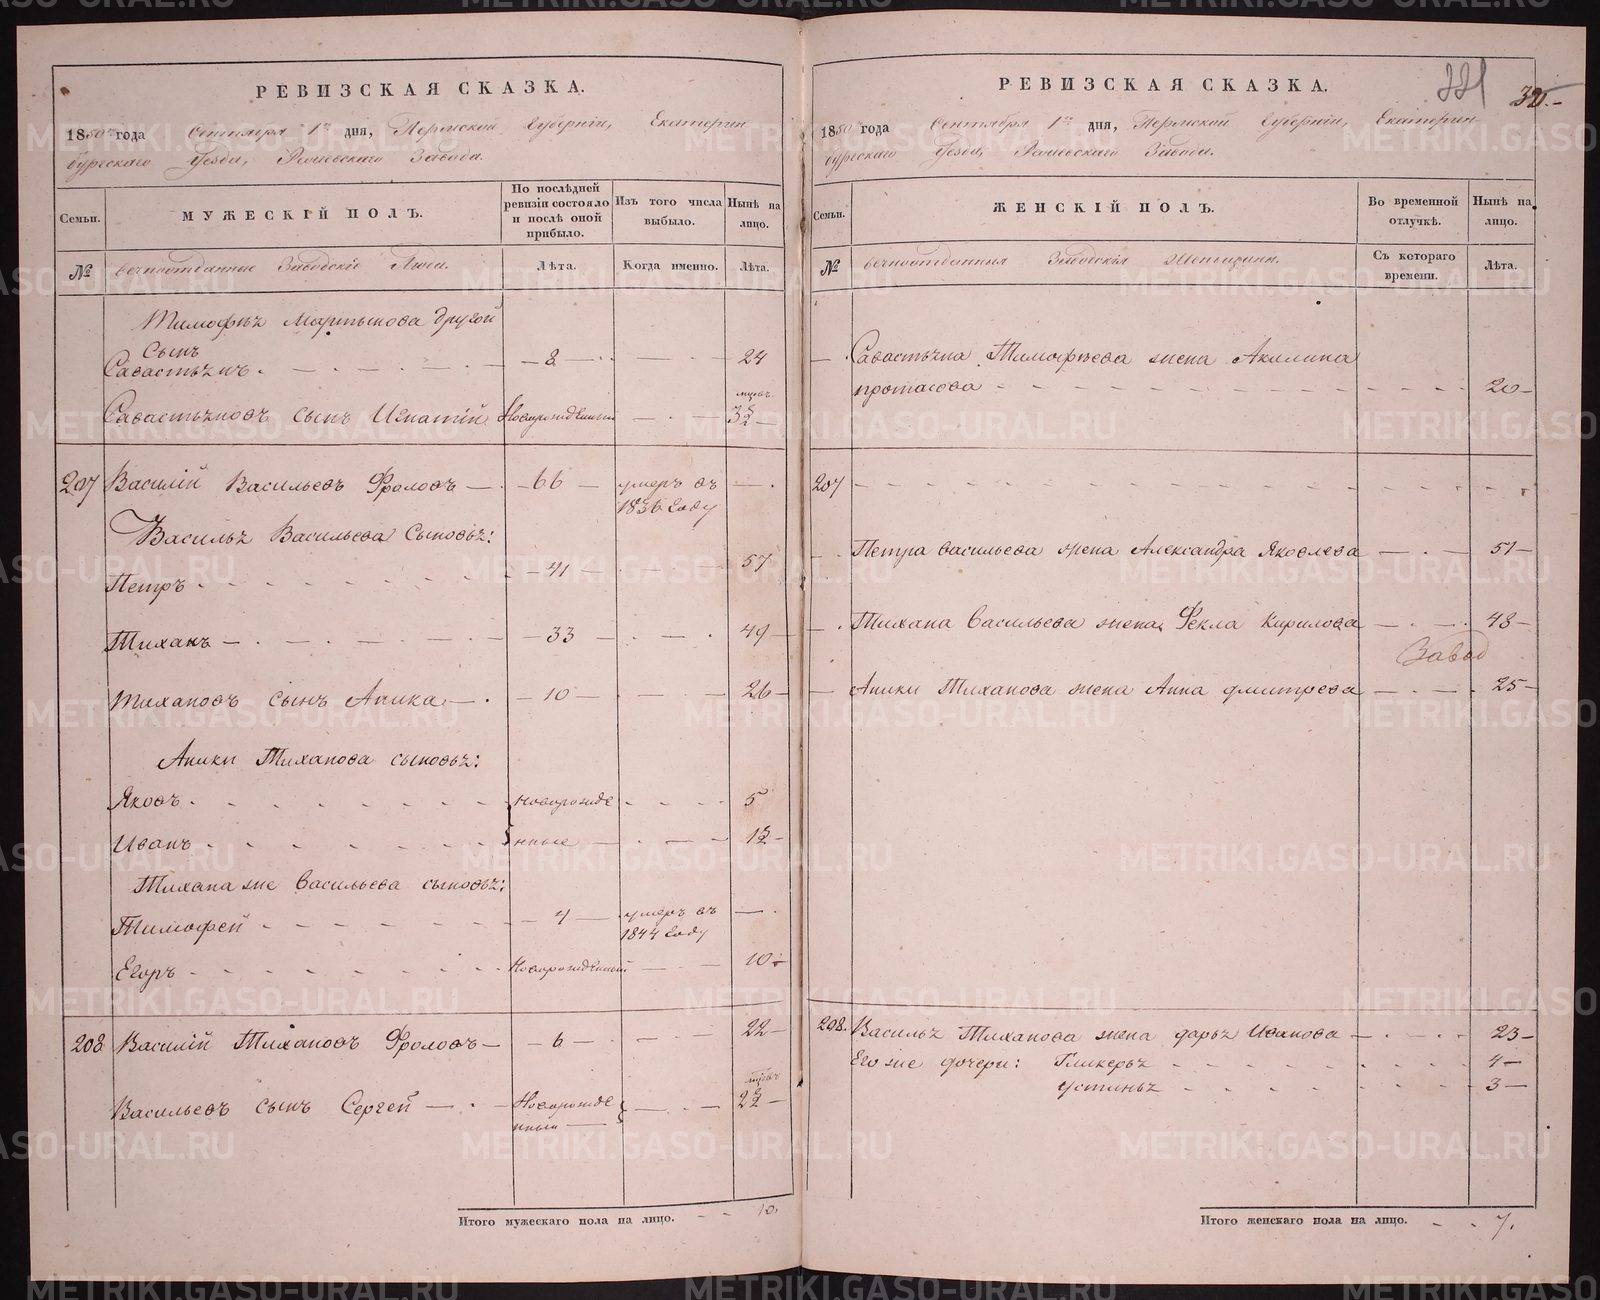 РЕВИЗСКАЯ СКАЗКА.
1850 года Сентября 1го дня, Пермской Губерніи, Екатерин
бургскаго Уезда, Завода.
Семьи.
МУЖЕСКІЙ ПОЛЪ.
По послѣдней ревизіи состояло и послѣ оной прибыло.
Изъ того числа выбыло.
Нынѣ на лицо.
№
вечноотданные Заводскіе Люди.
Лѣта.
Когда именно.
Лѣта.
Тимофѣя Мартынова другой
сынъ
Савастьянъ. 8 24
Савастьяновъ сынъ Игнатій Новорожденный
207 Василій Васильевъ Фроловъ 66 умеръ въ
1836 году
Василья Васильева Сыновья:
Петръ 41 57
Тиханъ 33 49
Тихановъ сынъ Аника 10 26
Аники Тиханова сыновья:
Яковъ новорожде 5
Иванъ нные
Тихана же Васильева сыновья:
Тимофей 4 умеръ въ
1844 году
Егоръ Новорожденный 10
208 Василій Тихановъ Фроловъ 6 22
Васильевъ сынъ Сергей Новорожде
нный
Итого мужескаго пола на лицо. 10.
РЕВИЗСКАЯ СКАЗКА.
1850 года Сентября 1го дня, Пермской Губерніи, Екатерин
бургскаго Уезда, Завода.
Семьи.
ЖЕНСКІЙ ПОЛЪ.
Во временной отлучкѣ.
Нынѣ на лицо.
№
вечноотданныя Заводскія Женщины.
Съ котораго времени.
Лѣта.
Савастьяна Тимофѣева жена Акилина
протасова 20
207
Петра васильева жена Александра Яковлева 51
Тихана Васильева жена Фекла Кирилова 48
Завод
Аники Тиханова жена Анна дмитрева 25
208. Василья Тиханова жена дарья Иванова 23
Его же дочери: Гликерья 4
устинья 3
Итого женскаго пола на лицо. 7.
METRIKI.GASO-URAL.RU